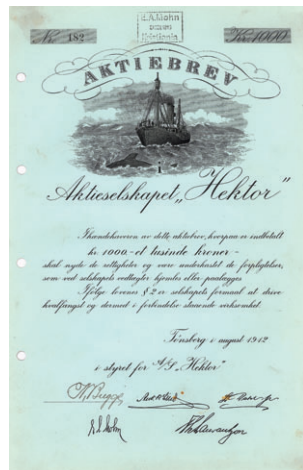 No. 182
Kr. 1000
AKTIEBREV
Aktieselskapet „Hektor“
Ihændehaveren av dette aktiebrev, hvorpaa er indbetalt
kr. 1000 - et tusinde kroner -
skal nyde de rettigheter og være underkastet de forpligtelser,
som ved selskapets vedtægter hjemles eller paalægges.
Ifølge lovens § 2 er selskapets formaal at drive
hvalfangst og dermed i forbindelse staaende virksomhet.
Tønsberg i august 1912
i styret for A/S „Hektor“
N. Bugge